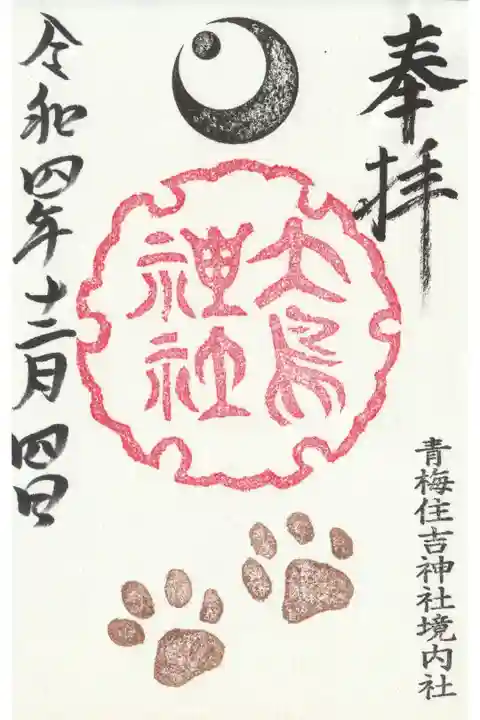 奉拝
大鳥
神社
青梅住吉神社境内社
令和四年十二月四日